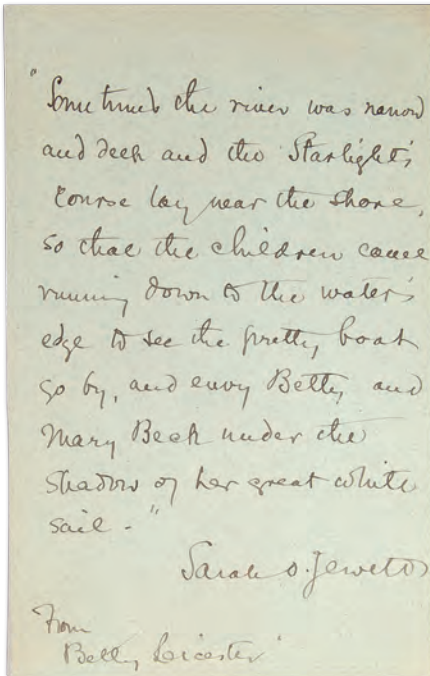 "Sometimes the river was narrow
and deep and the Starlight's
course lay near the shore,
so that the children came
running down to the water's
edge to see the pretty boat
go by, and envy Betty and
Mary Beck under the
shadow of her great white
sail."
Sarah O. Jewett
From
"Betty Leicester"